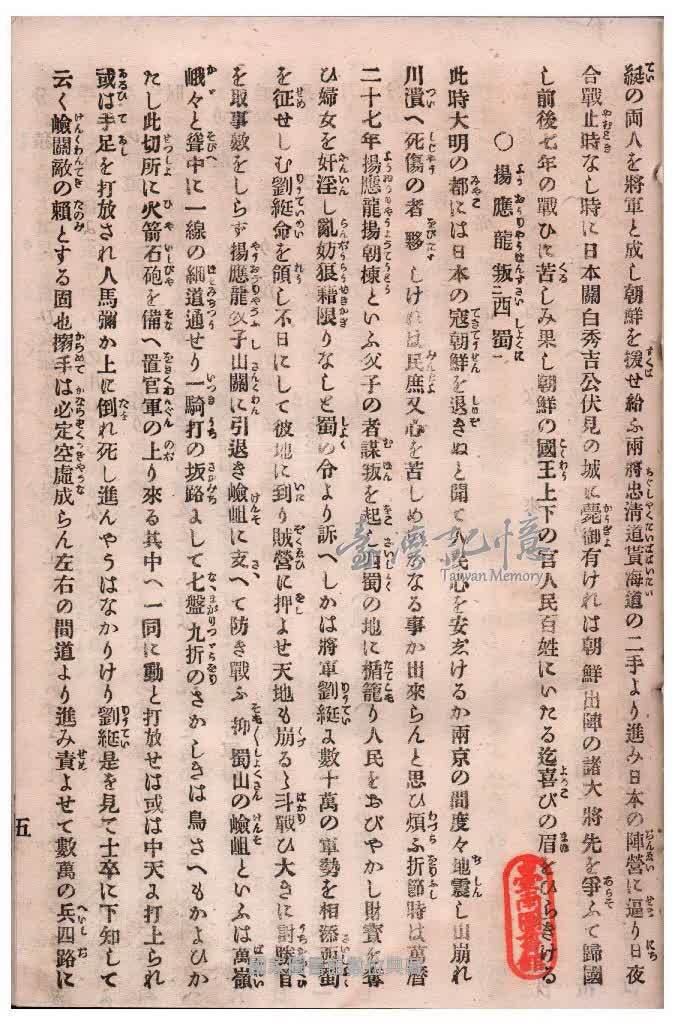 綎の両人を將軍と成し朝鮮を援せ給ふ兩將忠淸道貰海道の二手より進み日本の陣營に逼り日夜
合戰止時なし時に日本關白秀吉公伏見の城に薨御有けれは朝鮮出陣の諸大將先を爭ふて歸國
し前後七年の戰ひに苦しみ果し朝鮮の國王上下の官人民百姓にいたる迄喜びの眉をひらきける
○揚應龍叛二西蜀一
此時大明の都には日本の寇朝鮮を退きぬと聞て人民心を安ゑけるか兩京の間度々地震し山崩れ
川潰へ死傷の者夥しけれは民庶又心を苦しめ なる事か出來らんと思ひ煩ふ折節時は萬曆
二十七年揚應龍揚朝棟といふ父子の者謀叛を起し西蜀の地に楯籠り人民をおびやかし財寶を奪
ひ婦女を奸淫し亂妨狼藉限りなしと蜀の令より訴へしかは將軍劉綎に數十萬の軍勢を相添西蜀
を征せしむ劉綎命を領し不日にして彼地に到り賊營に押よせ天地も崩るゝ斗戰ひ大きに討勝首
を取事數をしらず揚應龍父子山關に引退き嶮岨に支へて防き戰ふ抑蜀山の嶮岨といふは萬嶺
峨々と聳中に一線の細道通せり一騎打の坂路よして七盤九折のさかしきは鳥さへもかよひか
たし此切所に火箭石砲を備へ置官軍の上り來る其中へ一同に動と打放せは或は中天よ打上られ
或は手足を打放され人馬彌か上に倒れ死し進んやうはなかりけり劉綎是を見て士卒に下知して
云く嶮關敵の賴とする固也搦手は必定空虛成らん左右の間道より進み責よせて數萬の兵四路に
五
臺灣記憶
Taiwan Memory